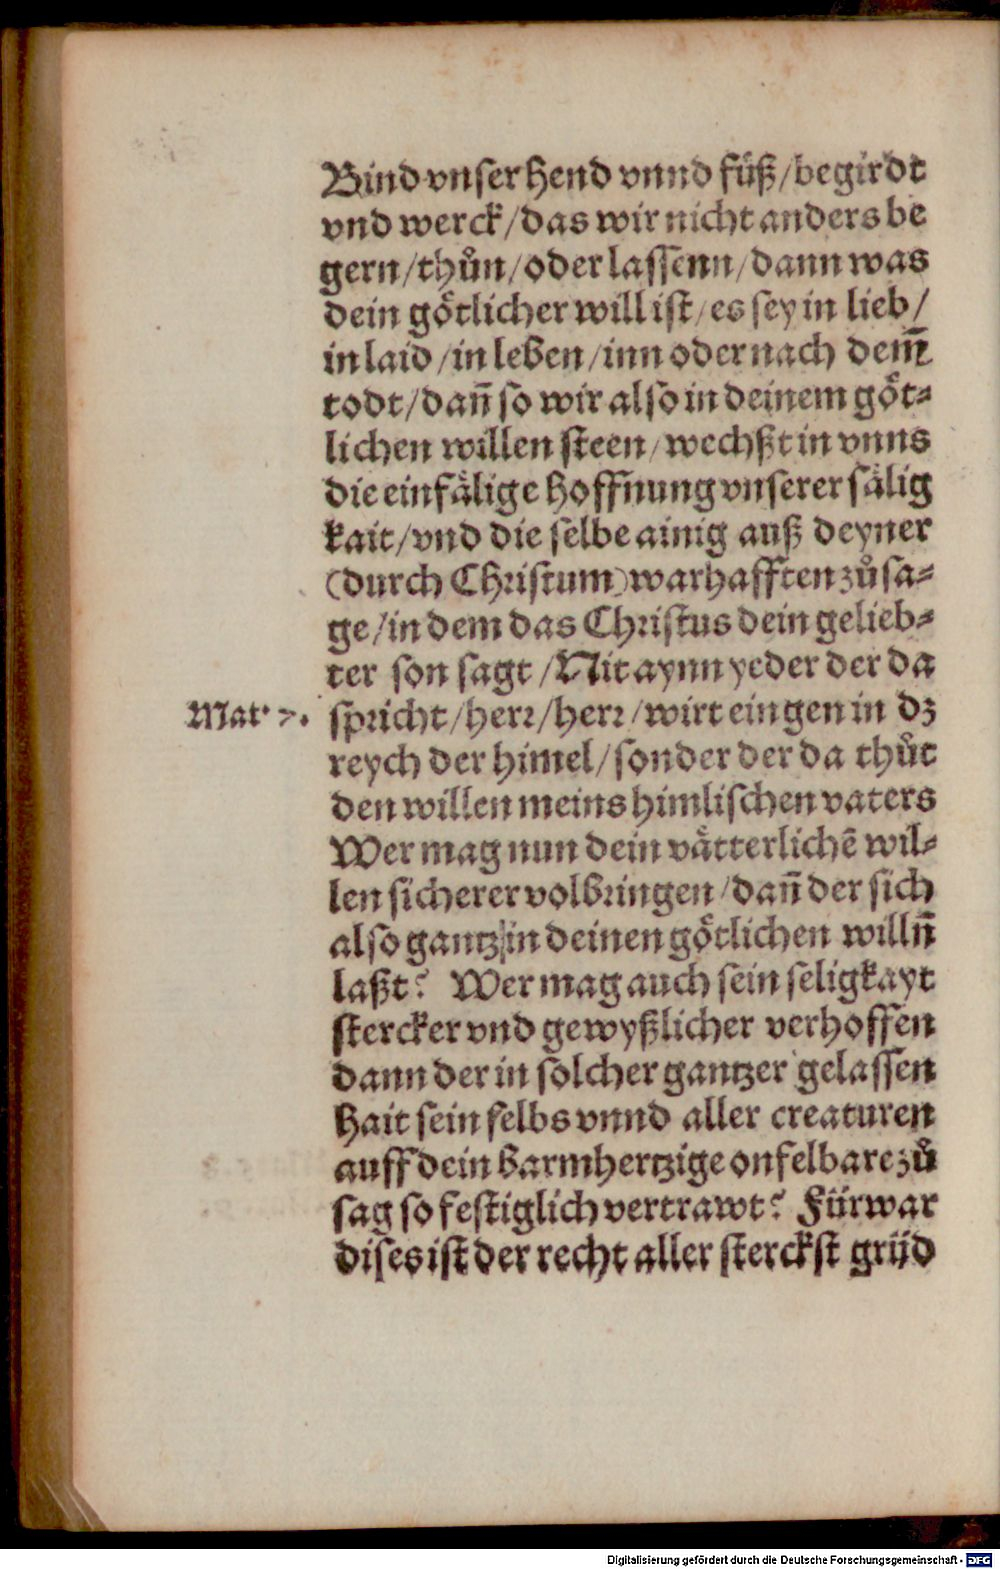 Bind vnser hend vnnd füß/begirdt
vnd werck/das wir nicht anders be
gern/thůn/oder lassenn/dann was
dein götlicher will ist/es sey in lieb/
in laid/in leben/inn oder nach dem̃
todt/dañ so wir also in deinem göt⸗
lichen willen steen/wechßt in vnns
die einfälige hoffnung vnserer sälig
kait/vnd die selbe ainig auß deyner
(durch Christum)warhafften zůsa⸗
ge/in dem das Christus dein gelieb⸗
ter son sagt/Nit aynn yeder der da
Mat. 7. spricht/herr/herr/wirt eingen in dz
reych der himel/sonder der da thůt
den willen meins himlischen vaters
Wer mag nun dein vätterlichē wil⸗
len sicherer volbringen/dañ der sich
also gantz in deinen götlichen willñ
laßt? Wer mag auch sein seligkayt
stercker vnd gewyßlicher verhoffen
dann der in solcher gantzer gelassen
hait sein selbs vnnd aller creaturen
auff dein barmhertzige onfelbare zů
sag so festiglich vertrawt? Fürwar
dises ist der recht aller sterckst grũd
Digitalisierung gefördert durch die Deutsche Forschungsgemeinschaft - DFG